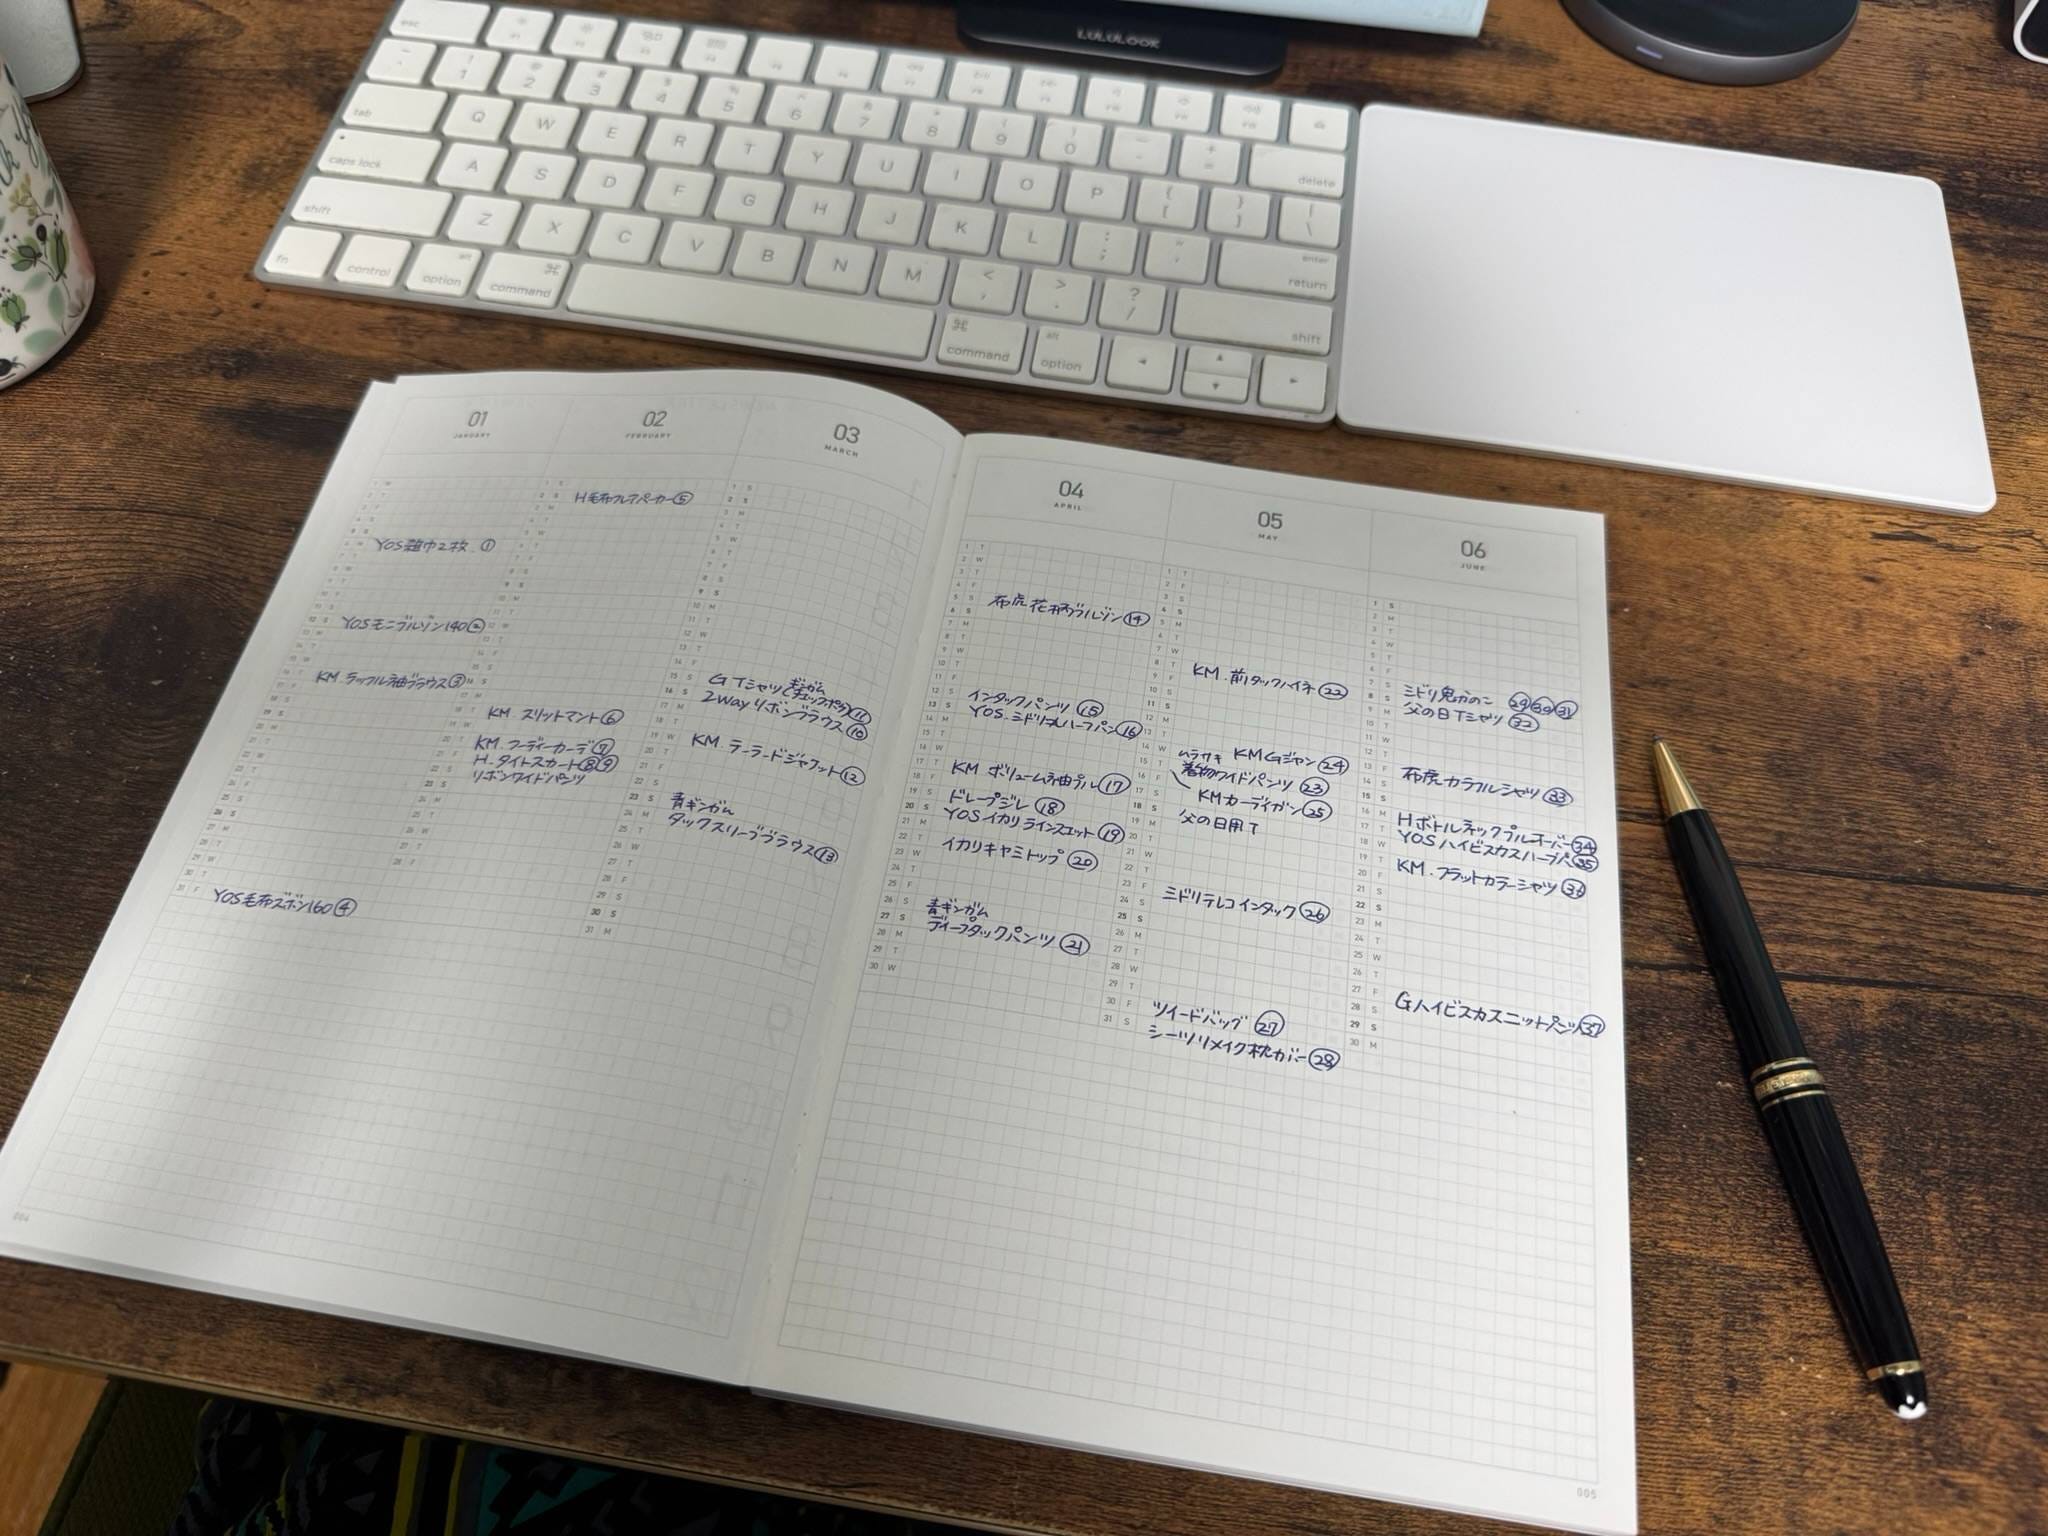 LULULOOK
esc
! 1
@ 2
# 3
$ 4
% 5
^ 6
& 7
* 8
( 9
) 0
_ -
+ =
delete
tab
Q W E R T Y U I O P { [ } ] | \
caps lock
A S D F G H J K L : ; " '
enter return
shift
Z X C V B N M < , > . ? /
shift
fn
control
alt option
⌘ command
⌘ command
alt option
01
JANUARY
YOS雑巾2枚 ①
YOSモニブルゾン140②
KM.ラッフル袖ブラウス③
YOS毛布ズボン160④
02
FEBRUARY
H毛布フレアパーカー⑤
KM スリットマント⑥
KM.フーディーカーデ⑦
H.タイトスカート⑧⑨
リボンワイドパンツ
03
MARCH
GTシャツ(ギンガム
チェックポケ)⑪
2wayリボンブラウス⑩
KM.テーラードジャケット⑫
青ギンガム
タックスリーブブラウス⑬
004
04
APRIL
布虎 花柄ブルゾン⑭
インタックパンツ⑮
YOS.ミドリ ハーフパン⑯
KM ボリューム袖プル⑰
ドレープジレ⑱
YOSイカリラインスエット⑲
イカリキャミトップ⑳
青ギンガム
ディープタックパンツ㉑
05
MAY
KM.前タックハイネ㉒
ムラサキ KMGジャン㉔
着物ワイドパンツ㉓
KMカーディガン㉕
父の日用T
ミドリテレコインタック㉖
ツイードバッグ㉗
シーツリメイク枕カバー㉘
06
JUNE
ミドリ鬼かのこ ㉙㉚㉛
父の日Tシャツ㉜
布虎カラフルシャツ㉝
Hボトルネックプルオーバー㉞
YOSハイビスカスハーフパ㉟
KM.フラットカラーシャツ㊱
Gハイビスカスニットパンツ㊲
005